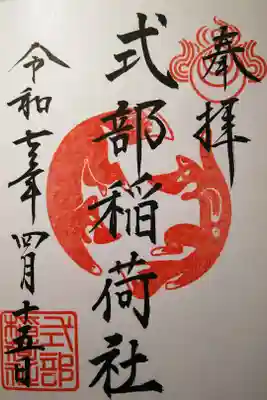 奉拝
式部稲荷社
令和六年四月十五日
式部
稲荷社